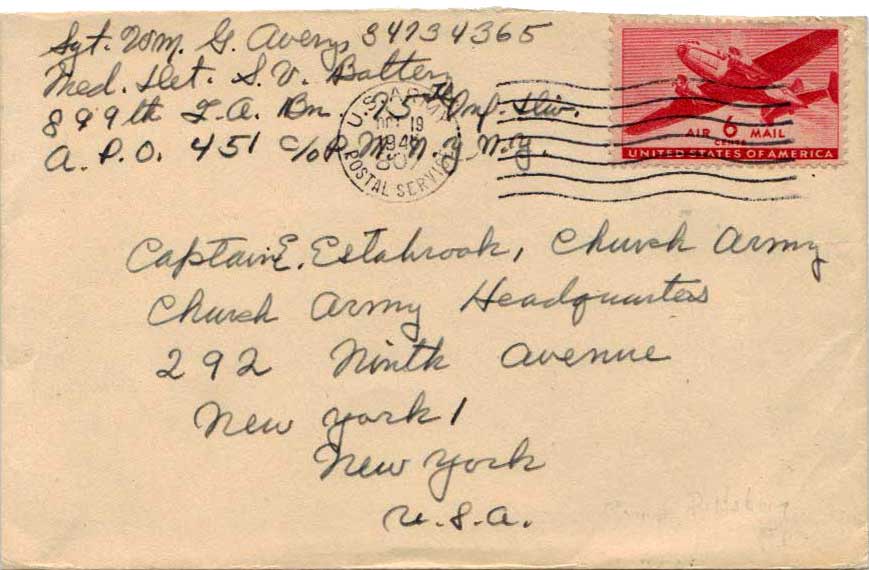 Sgt. Wm. G. Avery 34734365
Med. Det. S.V. Battery
899th F.A. Bn. 75th Inf. Div.
A.P.O. 451 c/o P.M. N.Y. N.Y.
U.S. ARMY
OCT 19
POSTAL SERVICE
AIR 6 MAIL
CENTS
UNITED STATES OF AMERICA
Captain E. Estabrook, Church Army
Church Army Headquarters
292 Ninth Avenue
New York 1
New York
U.S.A.